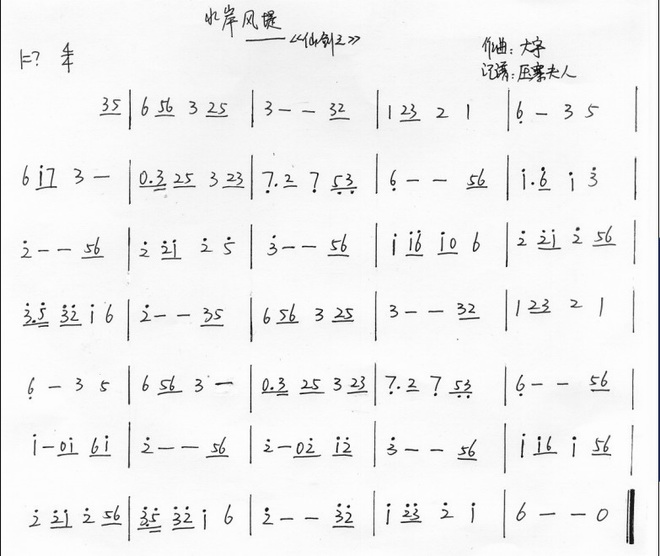 水岸风堤
——《仙剑三》
1=? 4/4
作曲:大宇
记谱:压寨夫人
3̲5̲ | 6 5̲6̲ 3 2̲5̲ | 3 - - 3̲2̲ | 1 2̲3̲ 2 1 | 6̣ - 3 5 |
6 i̲7̲ 3 - | 0̲.̲3̲ 2̲5̲ 3 2̲3̲ | 7̣.2̲ 7̣ 5̲̣3̲̣ | 6̣ - - 5̲6̲ | i.6̲̇ i 3̇ |
2̇ - - 5̲6̲ | 2̇ 2̲̇i̲ 2̇ 5̇ | 3̇ - - 5̲6̲ | i i̲6̲̇ i̲0̲ 6 | 2̇ 2̲̇i̲ 2̇ 5̲6̲ |
3̲̇.̲5̲̇ 3̲̇2̲̇ i 6 | 2̇ - - 3̲5̲ | 6 5̲6̲ 3 2̲5̲ | 3 - - 3̲2̲ | 1 2̲3̲ 2 1 |
6̣ - 3 5 | 6 5̲6̲ 3 - | 0̲.̲3̲ 2̲5̲ 3 2̲3̲ | 7̣.2̲ 7̣ 5̲̣3̲̣ | 6̣ - - 5̲6̲ |
i - 0̲i̲ 6̲i̲ | 2̇ - - 5̲6̲ | 2̇ - 0̲2̲̇ i̲2̲̇ | 3̇ - - 5̲6̲ | i i̲6̲ i 5̲6̲ |
2̇ 2̲̇i̲ 2̇ 5̲6̲ | 3̲̇.̲5̲̇ 3̲̇2̲̇ i 6 | 2̇ - - 3̲̇2̲̇ | i 2̲̇3̲̇ 2̇ i | 6 - - 0 ‖